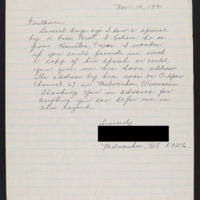 Nov. 14, 1991
Gentlemen:
Several days ago I saw a special
by H. Ross Perot. I believe he is
from Houston, Texas. I wonder
if you could provide me with
a copy of his speech or could
you give me his home address.
The address by him was on C-Span
Channel 27 in Milwaukee, Wisconsin
Thanking you in advance for
anything you can do for me in
this regard.
Sincerely
Milwaukee, WI